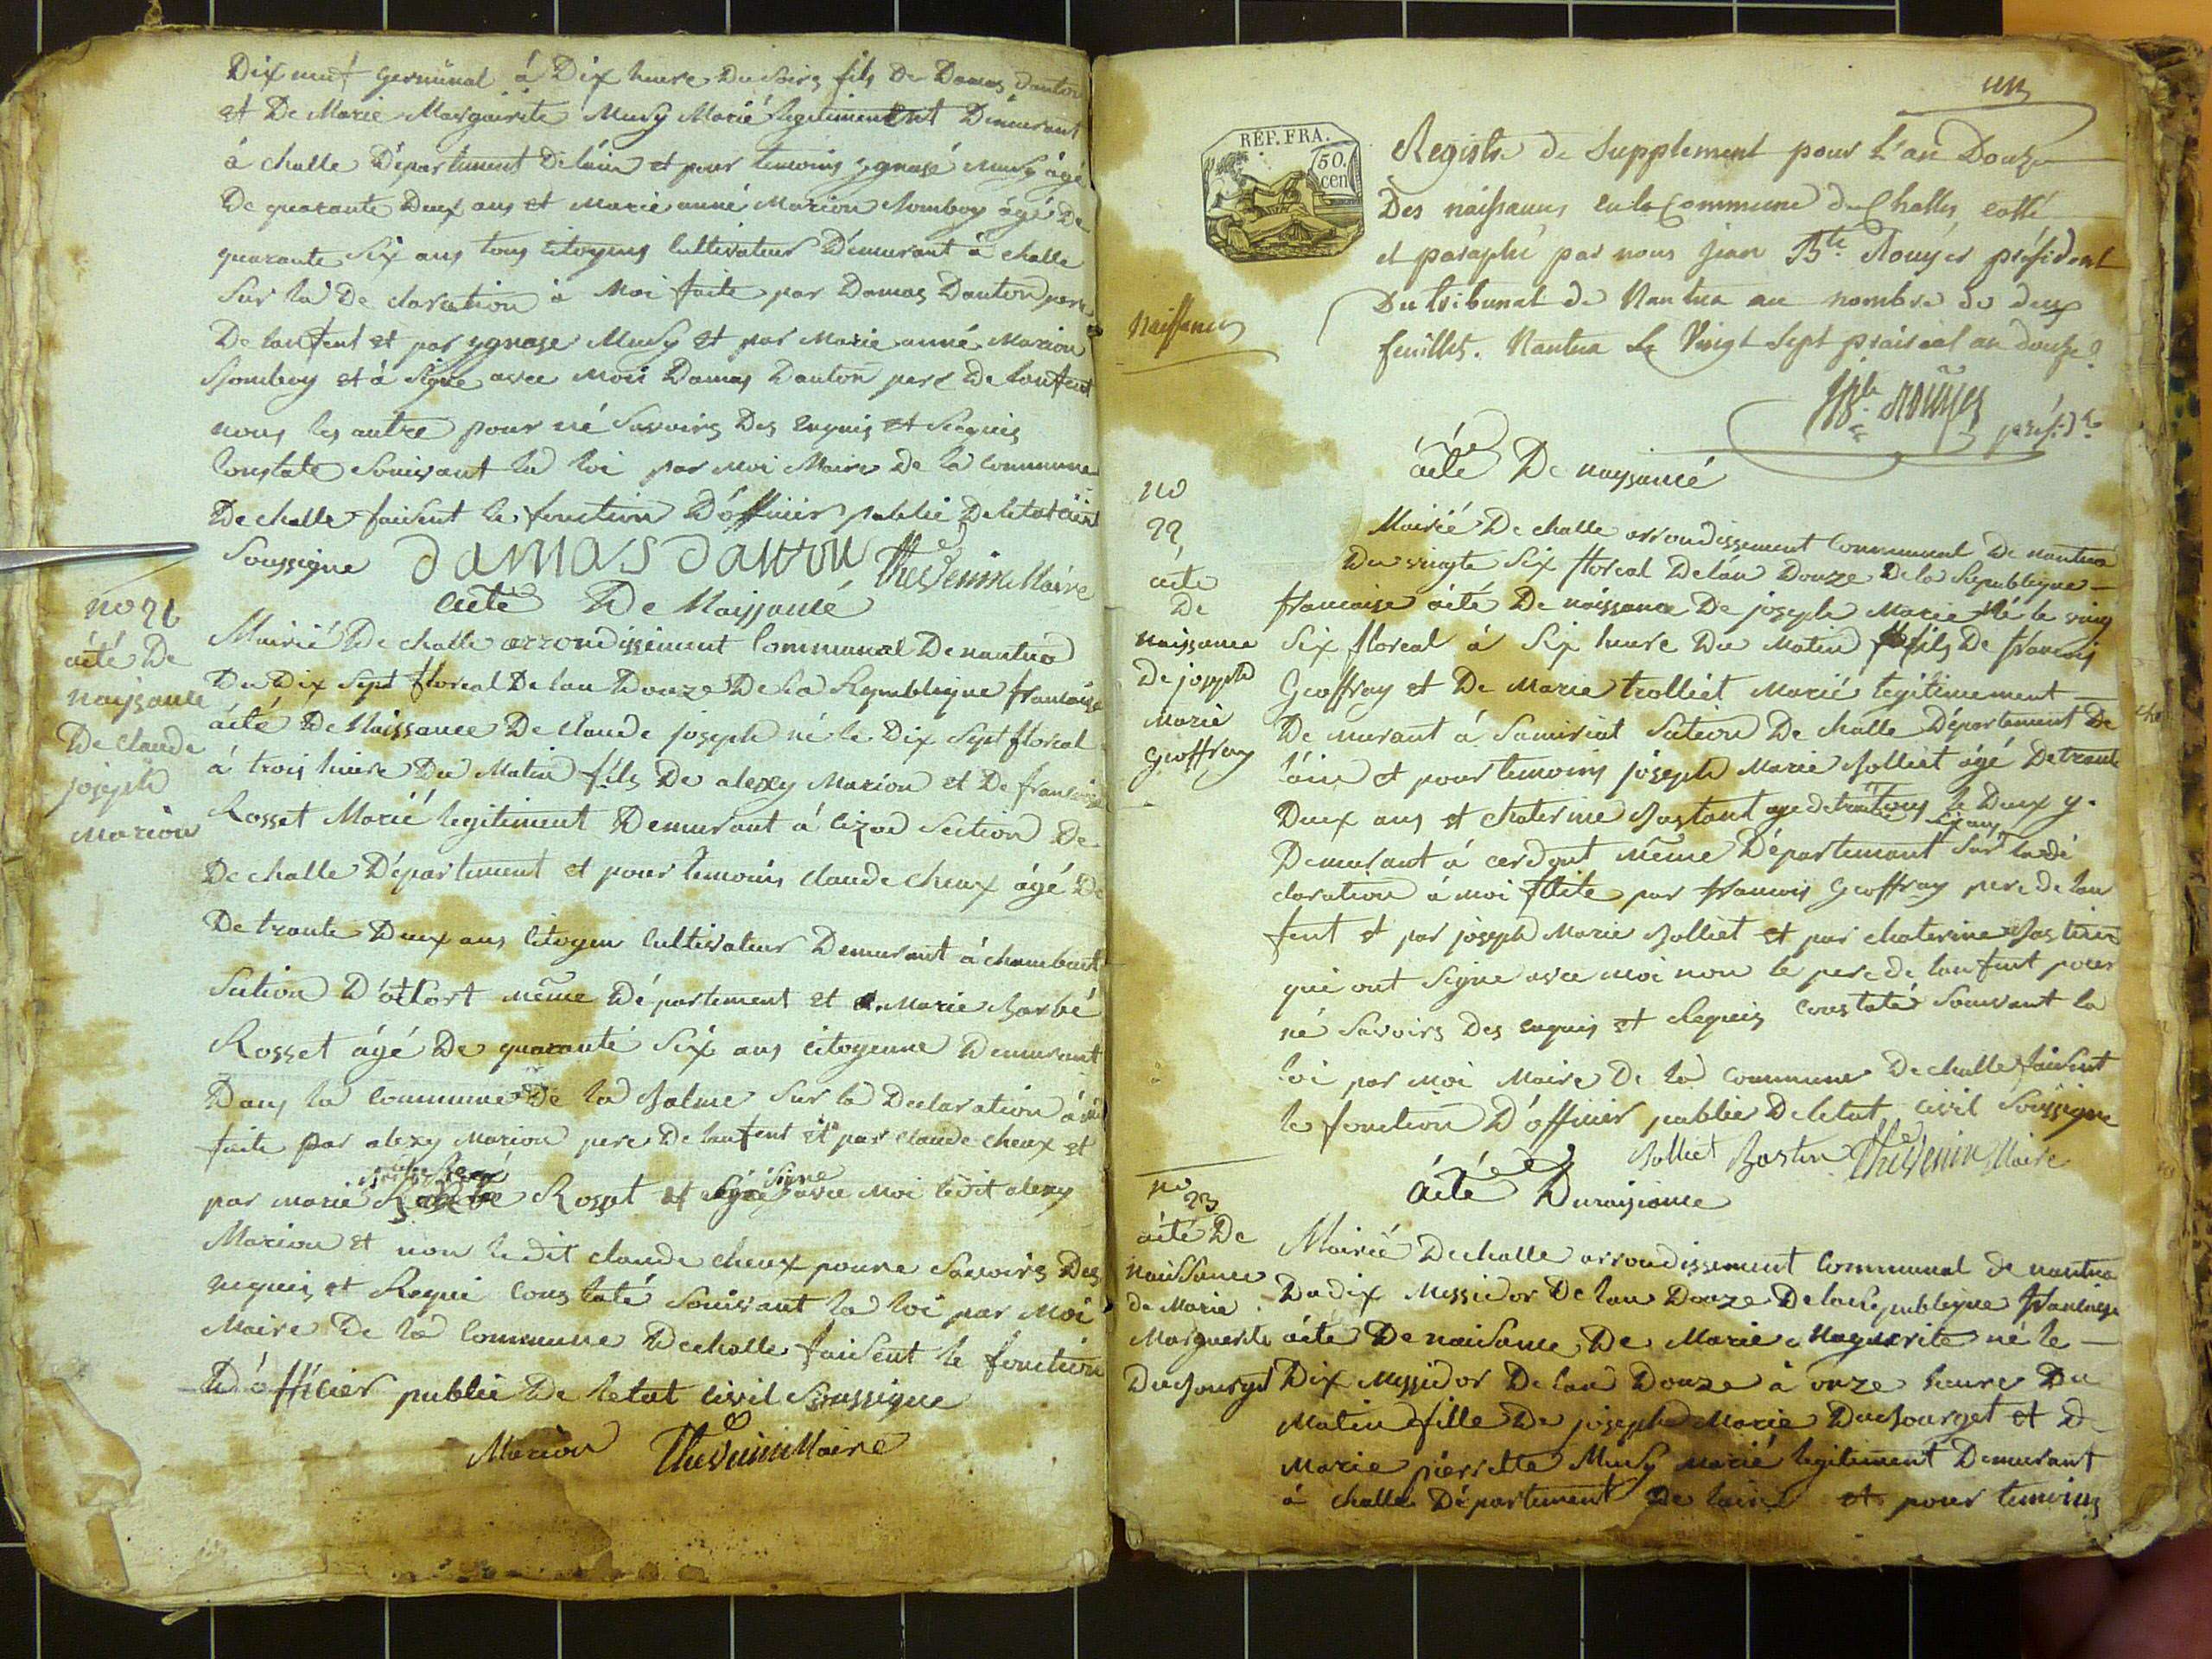 Dix neuf germinal à Dix heure Du Soirs fils De Damas Danton
et De Marie Marguirite Musy Marié legitimement Demurant
à challe Département De lain et pour temoins ygnase Musy âgé
De quarante Deux ans et Marie anné Marion Jomboy âgé De
quarante Six ans tous citoyens Cultivateur Demurant à challe
Sur la De claration à Moi faite par Damas Danton pere
De lanfent et par ygnase Musy et par Marie anné Marion
Jomboy et à Signe avec Moi Damas Danton pere De lanfent
nous les autre pour né Savoirs Des enquis et Requis
Constate Souivant la loi par Moi Maire De la Commune
De challe faisent le fonction D'officier publie De letat civil
Soussigne Damas Danton Thevenin Maire
acte De Naissance
no 21
acté De
Naissance
De Claude
joseph
Marion
Mairié De challe arrondissement Communal De nantua
Du Dix Sept floreal De lan Douze De la Republique francaise
acté De Naissance De claude joseph né le Dix Sept floreal
à trois heure Du Matin fils De alexy Marion et De francoise
Rosset Marié legitiment Demurant à Cizod Section De
De challe Département et pour temoins claude cheux âgé De
De trante Deux ans Citoyen Cultivateur Demurant à
Section D' même Département et Marie Barbé
Rosset âgé De quaranté Six ans citoyenne Demurant
Dans la Commune De la Balme Sur la Declaration à moi
faite par alexy Marion pere De lanfent et par claude cheux et
par marie Rosset et Signe avec Moi ledit alexy
Marion et non ledit claude cheux poure Savoirs Des
enquis et Requi Constaté Souivant la loi par Moi
Maire De la Commune De challe faisent le fonction
D'officier publie De letat Civil Soussigne
Marion Thevenin Maire
REP. FRA.
50.
cen
Naissances
Registre de Supplement pour L'an Douze
Des naissances en la Commune de Challes cotté
et paraphé par nous jean Bte. Rouyer président
Du tribunal de Nantua au nombre de deux
feuillets. Nantua Le Vingt Sept prairial an douze.
JBte. Rouyer présidt.
acté De nayssancé
no
22
acte
De
naissance
De joseph
Marie
Geoffray
Mairié De challe arrondissement Communal De nantua
Du vingte Six floreal De lan Douze De la Republique
francaise acté De naissance De joseph Marie Né le ving
Six floreal à Six heure Du Matin fils De francois
Geoffray et De Marie trolliét Marié legitimement
De murant à Samiriat Section De challe Département De
lain et pour temoins joseph Marie Jolliet âgé De trante
Deux ans et chaterine Bastant age de trante Six ans tous le Deux y.
Demurant à cerdont même Département Sur la dé
claration à moi faite par francois Geoffray pere de lan
fent et par joseph Marie Jolliet et par chaterine Bastin
qui ont Signe avec moi non le pere de lanfent pour
né Savoirs Des enquis et Requis Constaté Souivant la
loi par Moi Maire De la Commune De challe faisent
le fonction D'officier publie De letat civil Soussigne
Jolliet Bastin Thevenin Maire
acté De naissance
no 23
acté De
naissance
de Marie
Marguerite
DuJourget
Mairié De challe arrondissement Communal de nantua
Du dix Messidor De lan Douze De la Republique francaise
acté De naisance De Marie Maguerite né le
Dix Messidor De lan Douze à onze heure Du
Matin fille De joseph Marie DuJourget et D
Marie pierrette Musy Marié legitiment Demurant
à challe Département De lain et pour temoins